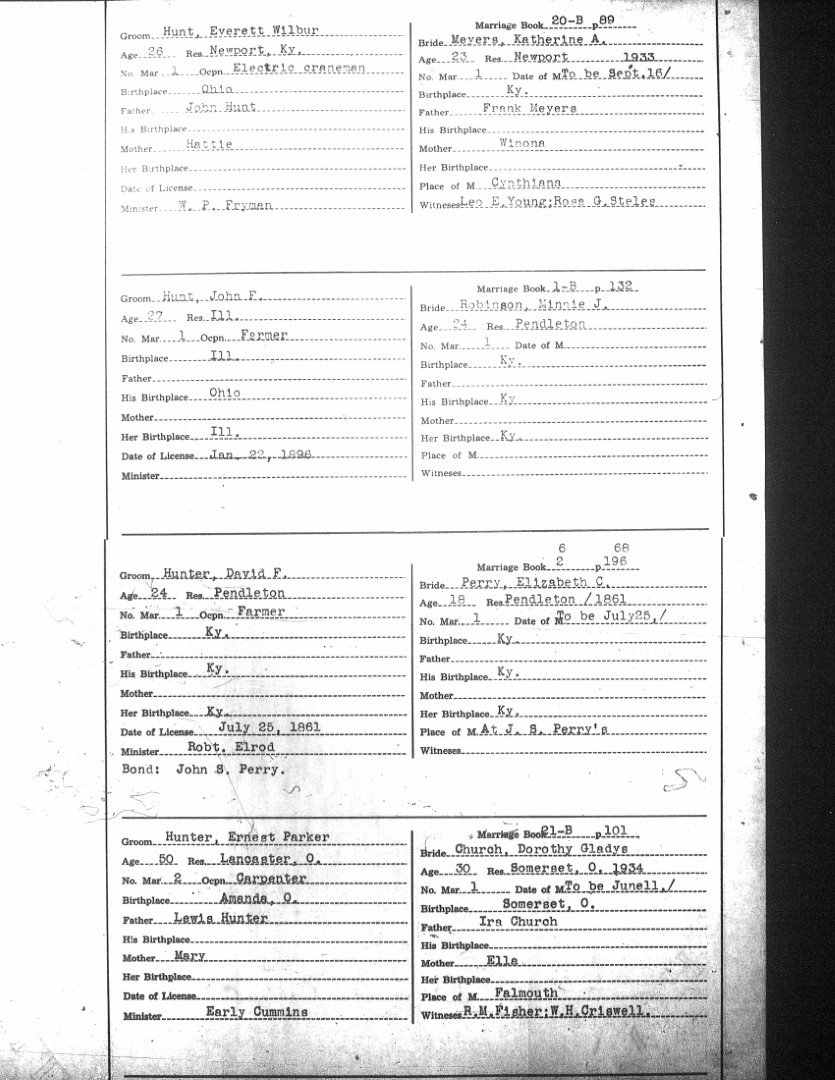 Groom Hunt, Everett Wilbur
Age 26 Res. Newport, Ky.
No. Mar 1 Ocpn. Electric craneman
Birthplace Ohio
Father John Hunt
His Birthplace
Mother Hattie
Her Birthplace
Date of License
Minister W. P. Fryman
Marriage Book 20-B p 89
Bride Meyers, Katherine A.
Age 23 Res Newport 1933
No. Mar 1 Date of M To be Sept.16/
Birthplace Ky.
Father Frank Meyers
His Birthplace
Mother Winona
Her Birthplace
Place of M Cynthiana
Witneses Leo E.Young;Rosa G.Steles
Groom Hunt, John F.
Age 27 Res Ill.
No. Mar. 1 Ocpn. Farmer
Birthplace Ill.
Father
His Birthplace Ohio
Mother
Her Birthplace Ill.
Date of License Jan. 22, 1896
Minister
Marriage Book 1-B p. 132
Bride Robinson, Minnie J.
Age 24 Res Pendleton
No. Mar. 1 Date of M
Birthplace Ky.
Father
His Birthplace Ky
Mother
Her Birthplace Ky.
Place of M.
Witneses
Groom Hunter, David F.
Age 24 Res Pendleton
No. Mar 1 Ocpn. Farmer
Birthplace Ky.
Father
His Birthplace Ky.
Mother
Her Birthplace Ky.
Date of License July 25, 1861
Minister Robt. Elrod
Bond: John S. Perry.
6 68
Marriage Book 2 p 196
Bride Perry, Elizabeth C.
Age 18 Res Pendleton /1861
No. Mar. 1 Date of M To be July25,/
Birthplace Ky.
Father
His Birthplace Ky.
Mother
Her Birthplace Ky.
Place of M At J. S. Perry's
Witneses
Groom Hunter, Ernest Parker
Age 50 Res. Lancaster, O.
No. Mar 2 Ocpn. Carpenter
Birthplace Amanda, O.
Father Lewis Hunter
His Birthplace
Mother Mary
Her Birthplace
Date of License
Minister Early Cummins
Marriage Book 21-B p. 101
Bride Church, Dorothy Gladys
Age 30 Res Somerset, O. 1934
No. Mar. 1 Date of M To be June11,/
Birthplace Somerset, O.
Father Ira Church
His Birthplace
Mother Ella
Her Birthplace
Place of M. Falmouth
Witneses R.M.Fisher;W.H.Criswell.